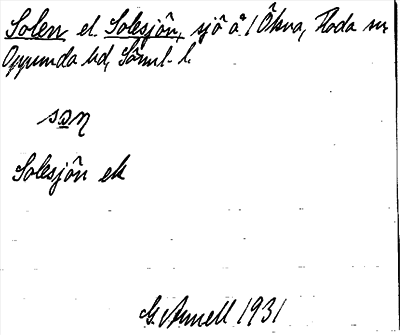 Solen el. Solesjön, sjö å / Ökna, Floda sn
Oppunda hd, Söml. l.
sən
Solesjön ek
G. Annell 1931